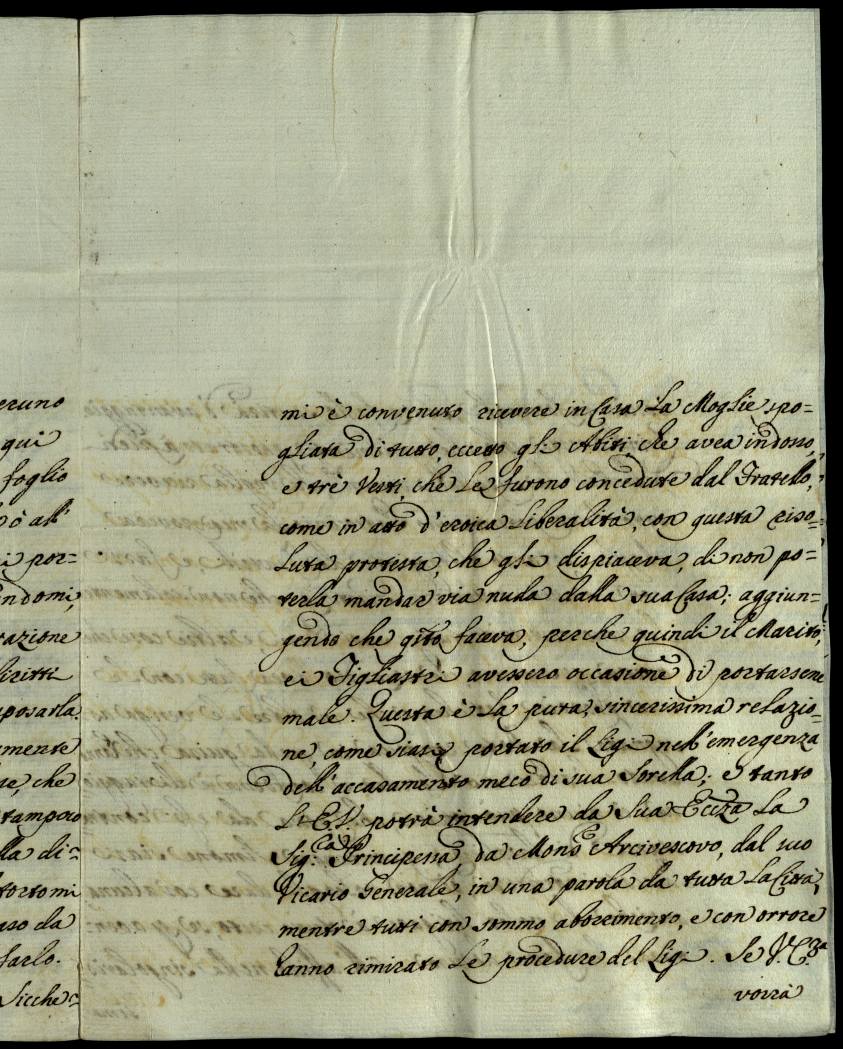 eruno
qui
foglio
ò all'
i por=
ndomi,
razione
diritti
posarla.
mente
re, che
tampoco
lla di=
tortomi
aso da
farlo.
Sicche
mi è convenuto ricevere in Casa La Moglie spo=
gliata di tutto, eccetto gli Abiti, che avea indosso,
e trè Vesti, che Le furono concedute dal Fratello,
come in atto d'eroica Liberalità, con questa riso=
Luta protesta, che gli dispiaceva, di non po=
terla mandar via nuda dalla sua Casa; aggiun=
gendo che qsto faceva, perche quindi il Marito,
ei Figliastri avessero occasione di portarsene
male. Questa è La pura, sincerissima relazio=
ne, come siasi portato il Sig: nell'emergenza
dell'accasamento meco di sua Sorella; e tanto
L'E.V. potrà intendere da Sua Eccza La
Sig:ra Principessa, da Monse Arcivescovo, dal suo
Vicario Generale, in una parola da tutta La Città,
mentre tutti con sommo aborrimento, e con orrore
hanno rimirato Le procedure del Sig: . Se V. Eza
vorrà